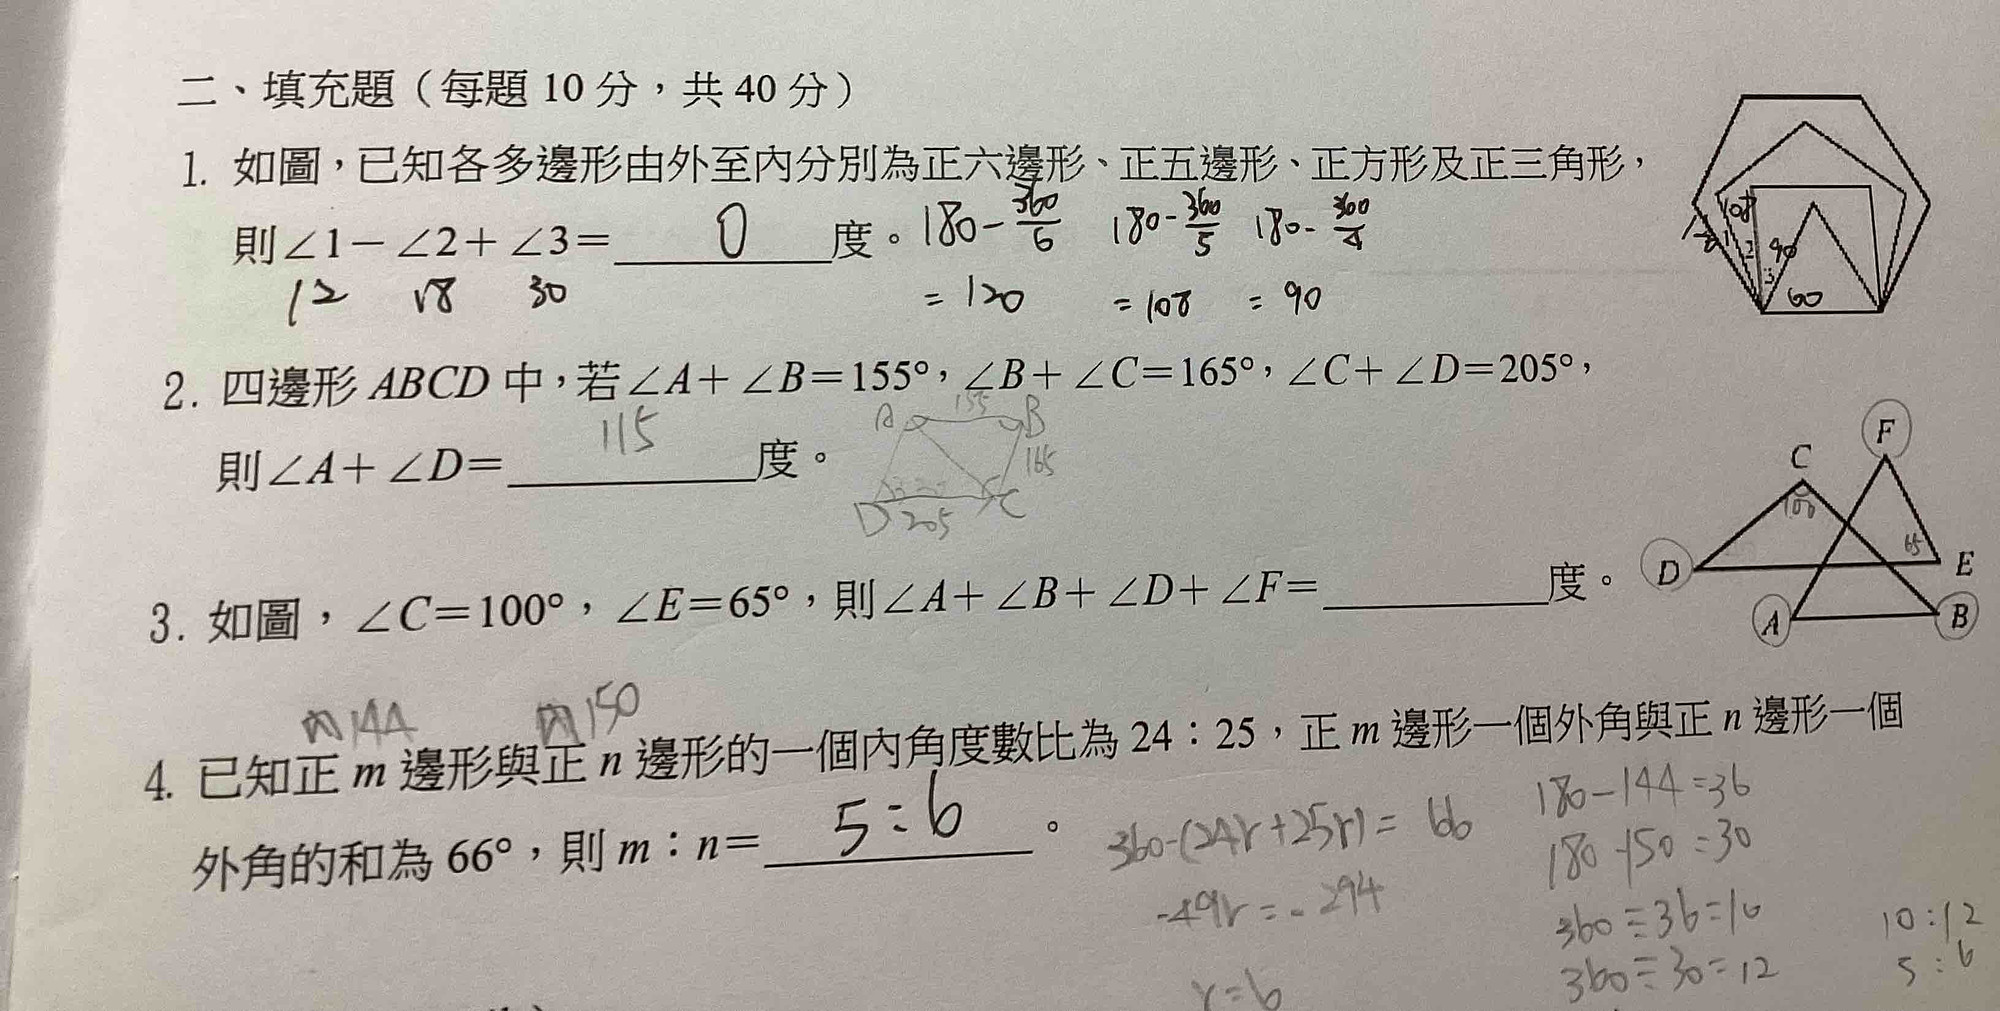 二、填充題（每題 10 分，共 40 分）
1. 如圖，已知各多邊形由外至內分別為正六邊形、正五邊形、正方形及正三角形，
則∠1－∠2＋∠3＝ 0 度。 180-360/6 180-360/5 180-360/4
12 18 30 =120 =108 =90
108
1 2 90
3 60
2. 四邊形 ABCD 中，若∠A＋∠B＝155°，∠B＋∠C＝165°，∠C＋∠D＝205°，
則∠A＋∠D＝ 115 度。
A 155 B
165
D 205 C
3. 如圖，∠C＝100°，∠E＝65°，則∠A＋∠B＋∠D＋∠F＝ 度。
F
C
100
65
D E
A B
內144 內150
4. 已知正 m 邊形與正 n 邊形的一個內角度數比為 24：25，正 m 邊形一個外角與正 n 邊形一個
外角的和為 66°，則 m：n＝ 5:6 。
360-(24r+25r)= 66
-49r=-294
r=6
180-144=36
180-150=30
360÷36=10
360÷30=12
10:12
5:6